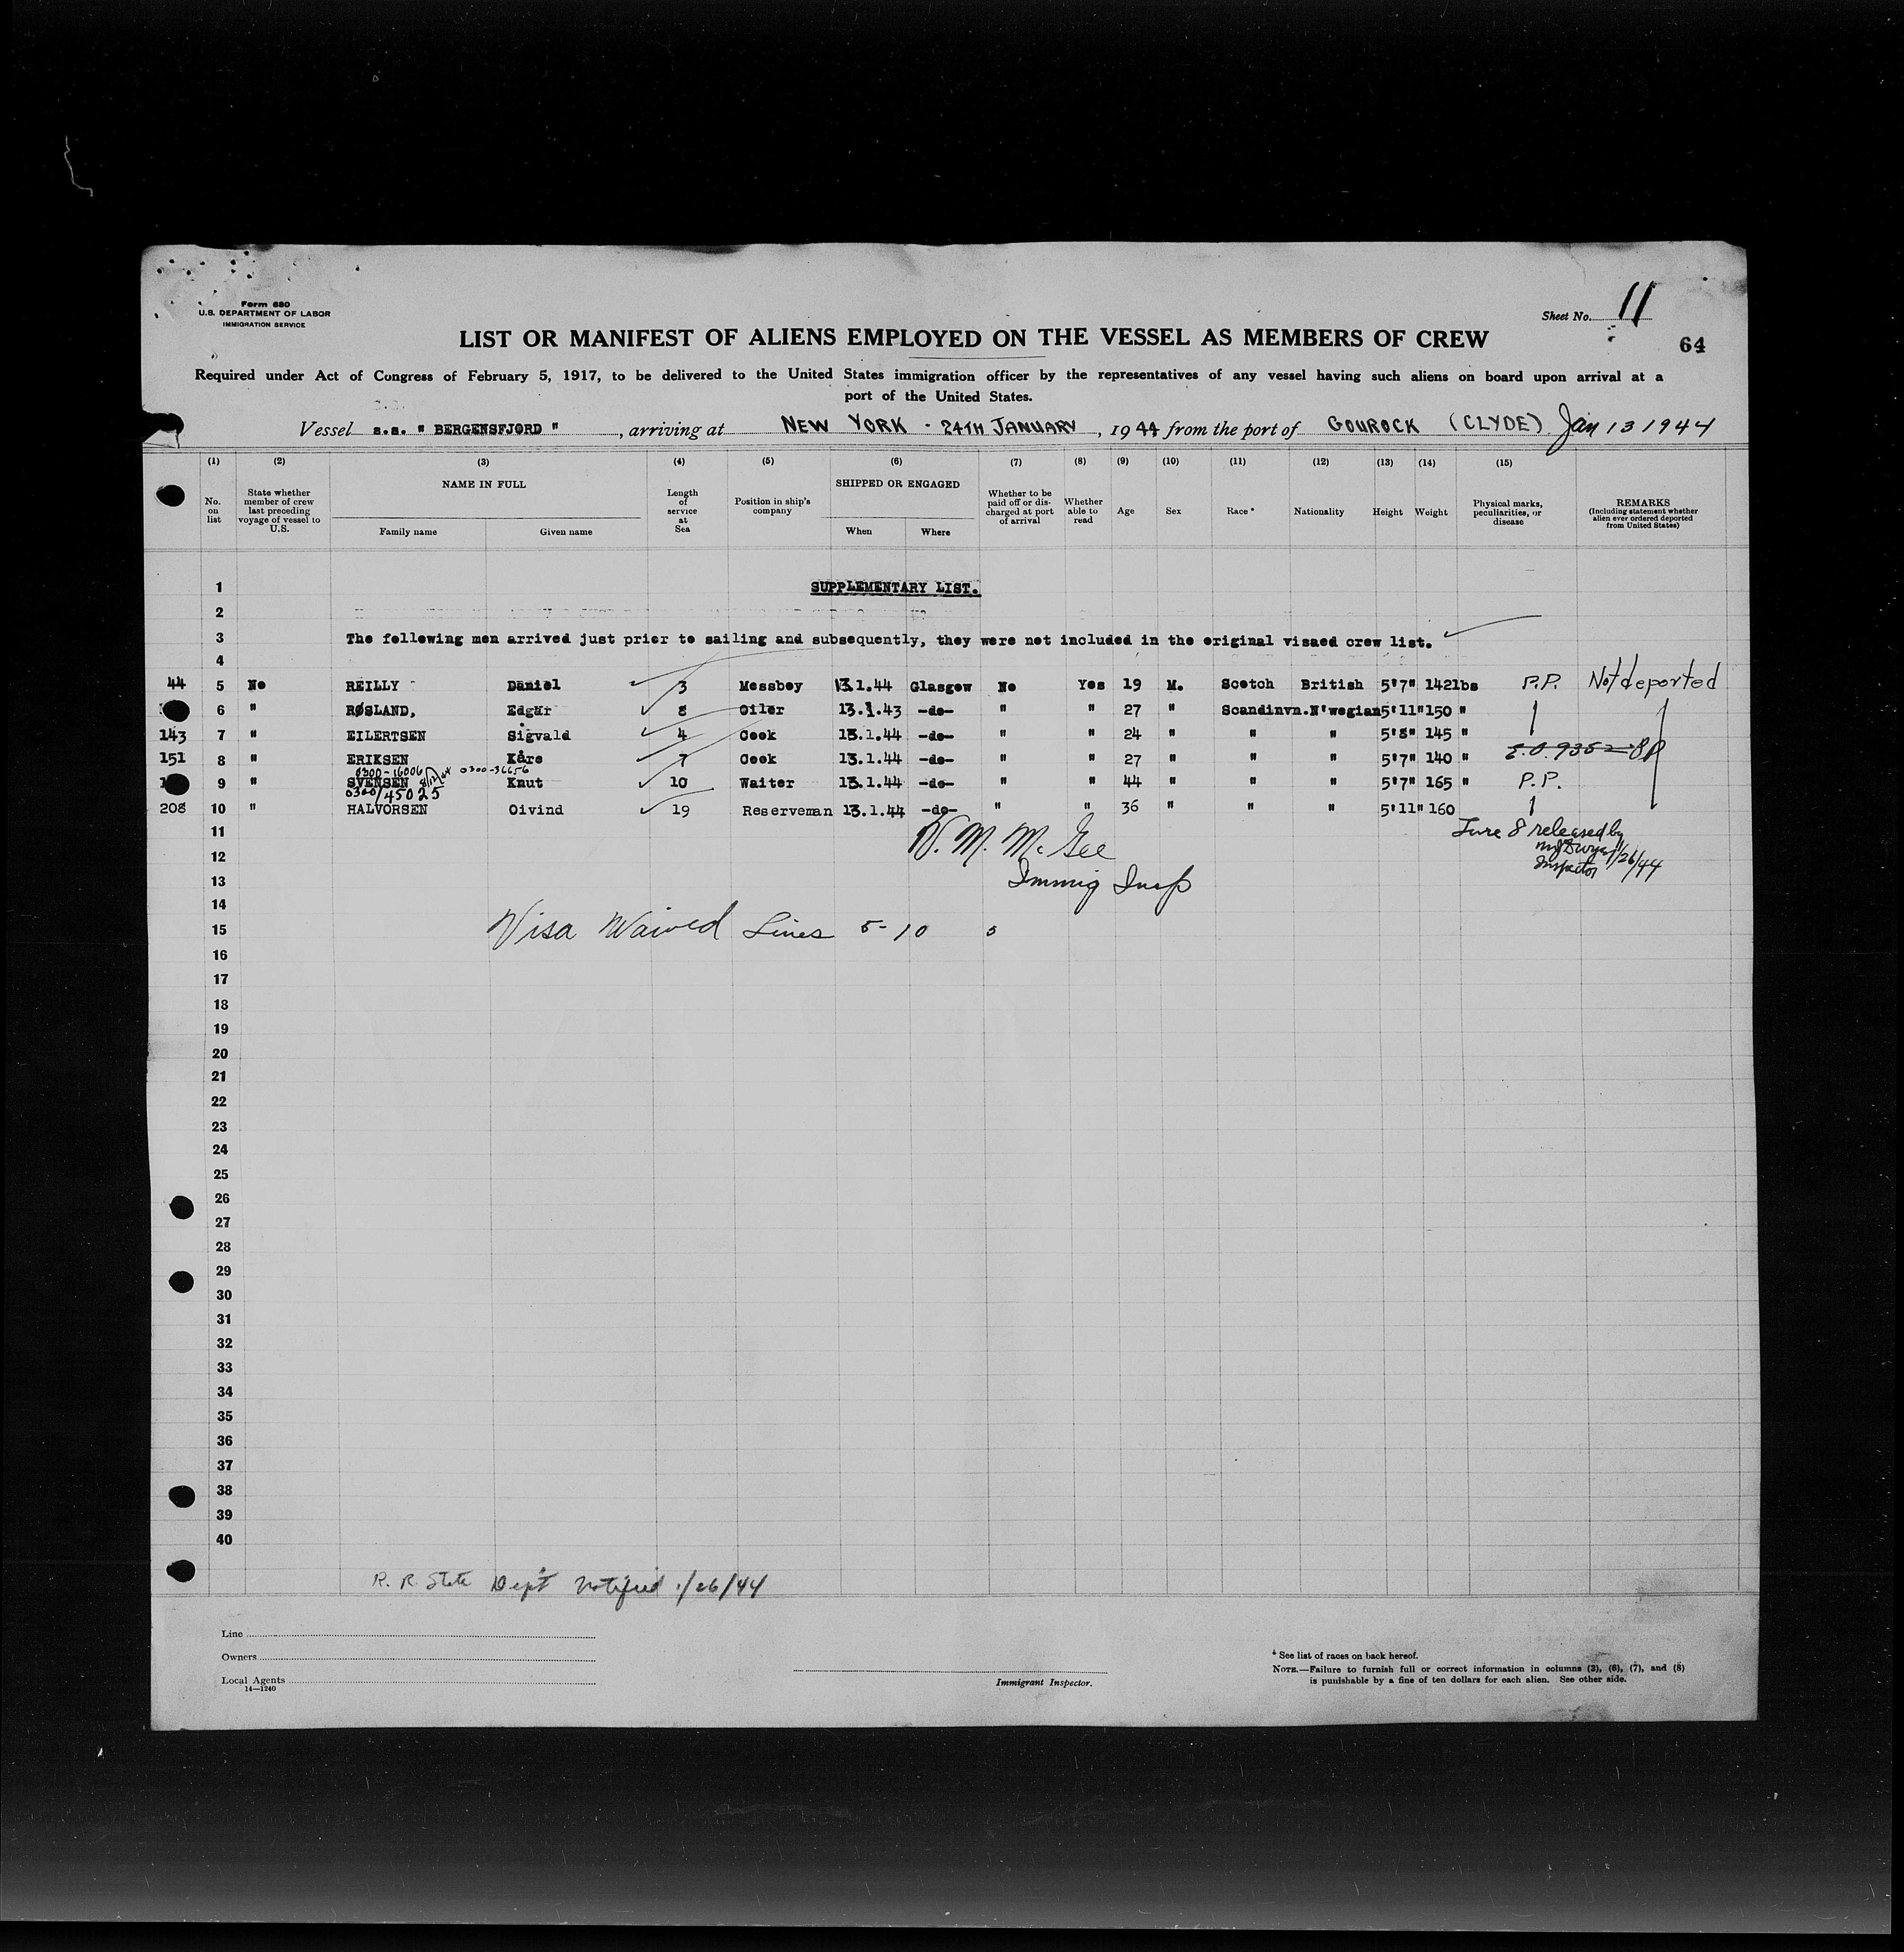 Form 680
U.S. DEPARTMENT OF LABOR
IMMIGRATION SERVICE
Sheet No. 11
64
LIST OR MANIFEST OF ALIENS EMPLOYED ON THE VESSEL AS MEMBERS OF CREW
Required under Act of Congress of February 5, 1917, to be delivered to the United States immigration officer by the representatives of any vessel having such aliens on board upon arrival at a
port of the United States.
Vessel s.s. " BERGENSFJORD ", arriving at NEW YORK - 24TH JANUARY, 1944 from the port of GOUROCK (CLYDE) Jan 13 1944
(1) (2) (3) (4) (5) (6) (7) (8) (9) (10) (11) (12) (13) (14) (15)
No. on list
State whether member of crew last preceding voyage of vessel to U.S.
NAME IN FULL
Family name
Given name
Length of service at Sea
Position in ship's company
SHIPPED OR ENGAGED
When
Where
Whether to be paid off or discharged at port of arrival
Whether able to read
Age
Sex
Race *
Nationality
Height
Weight
Physical marks, peculiarities, or disease
REMARKS
(Including statement whether alien ever ordered deported from United States)
1 SUPPLEMENTARY LIST.
2
3 The following men arrived just prior to sailing and subsequently, they were not included in the original visaed crew list.
4
44 5 No REILLY Daniel 3 Messboy 13.1.44 Glasgow No Yes 19 M. Scotch British 5'7" 142lbs P.P. Not deported
6 " RØSLAND, Edgar 8 Oiler 13.1.43 -do- " " 27 " Scandinvn. N'wegian 5'11" 150 "
143 7 " EILERTSEN Sigvald 4 Cook 13.1.44 -do- " " 24 " " " 5'8" 145 "
151 8 " ERIKSEN Kåre 7 Cook 13.1.44 -do- " " 27 " " " 5'7" 140 " E.O. 9352 PP
0300-16006 0300-36656
9 " SVENSEN Knut 10 Waiter 13.1.44 -do- " " 44 " " " 5'7" 165 " P.P.
0300/45025
208 10 " HALVORSEN Oivind 19 Reserveman 13.1.44 -do- " " 36 " " " 5'11" 160
11 8 released by
12 W. M. McGee Inspector 1/26/44
13 Immig Insp
14
15 Visa Waived Lines 5-10
16
17
18
19
20
21
22
23
24
25
26
27
28
29
30
31
32
33
34
35
36
37
38
39
40
R. R. State Dep't Notified 1/26/44
Line
Owners
Local Agents
14—1240
Immigrant Inspector.
* See list of races on back hereof.
NOTE.—Failure to furnish full or correct information in columns (3), (6), (7), and (8)
is punishable by a fine of ten dollars for each alien. See other side.